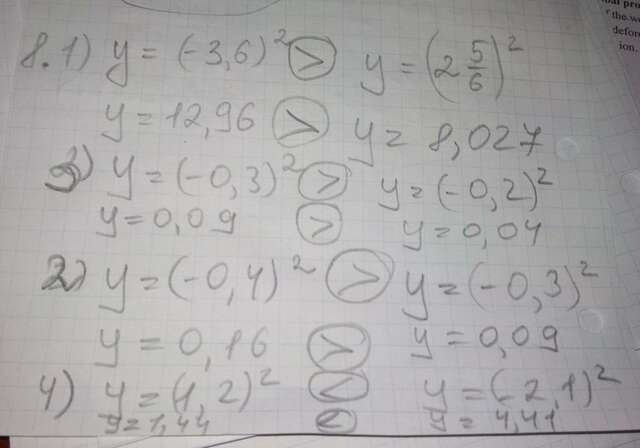 8.1) y = (-3,6)² > y = (2 5/6)²
y = 12,96 > y = 8,027
3) y = (-0,3)² > y = (-0,2)²
y = 0,09 > y = 0,04
2) y = (-0,4)² > y = (-0,3)²
y = 0,16 > y = 0,09
4) y = (1,2)² < y = (-2,1)²
y = 1,44 < y = 4,41
the w
defor
ion.